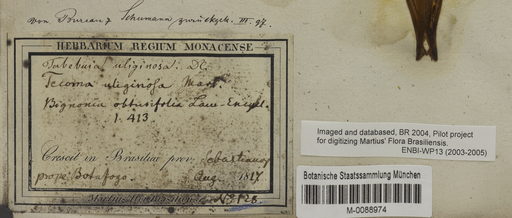 von Bureau & Schumann zurückgek. III. 97.
HERBARIUM REGIUM MONACENSE
Tabebuia uliginosa. DC.
Tecoma uliginosa Mart.
Bignonia obtusifolia Lam. Encycl.
1. 413.
Crescit in Brasiliae prov. Sebastianop.
prope Botafogo. Aug. 1817
Martius
No. 128.
Imaged and databased, BR 2004, Pilot project
for digitizing Martius' Flora Brasiliensis.
ENBI-WP13 (2003-2005)
Botanische Staatssammlung München
M-0088974